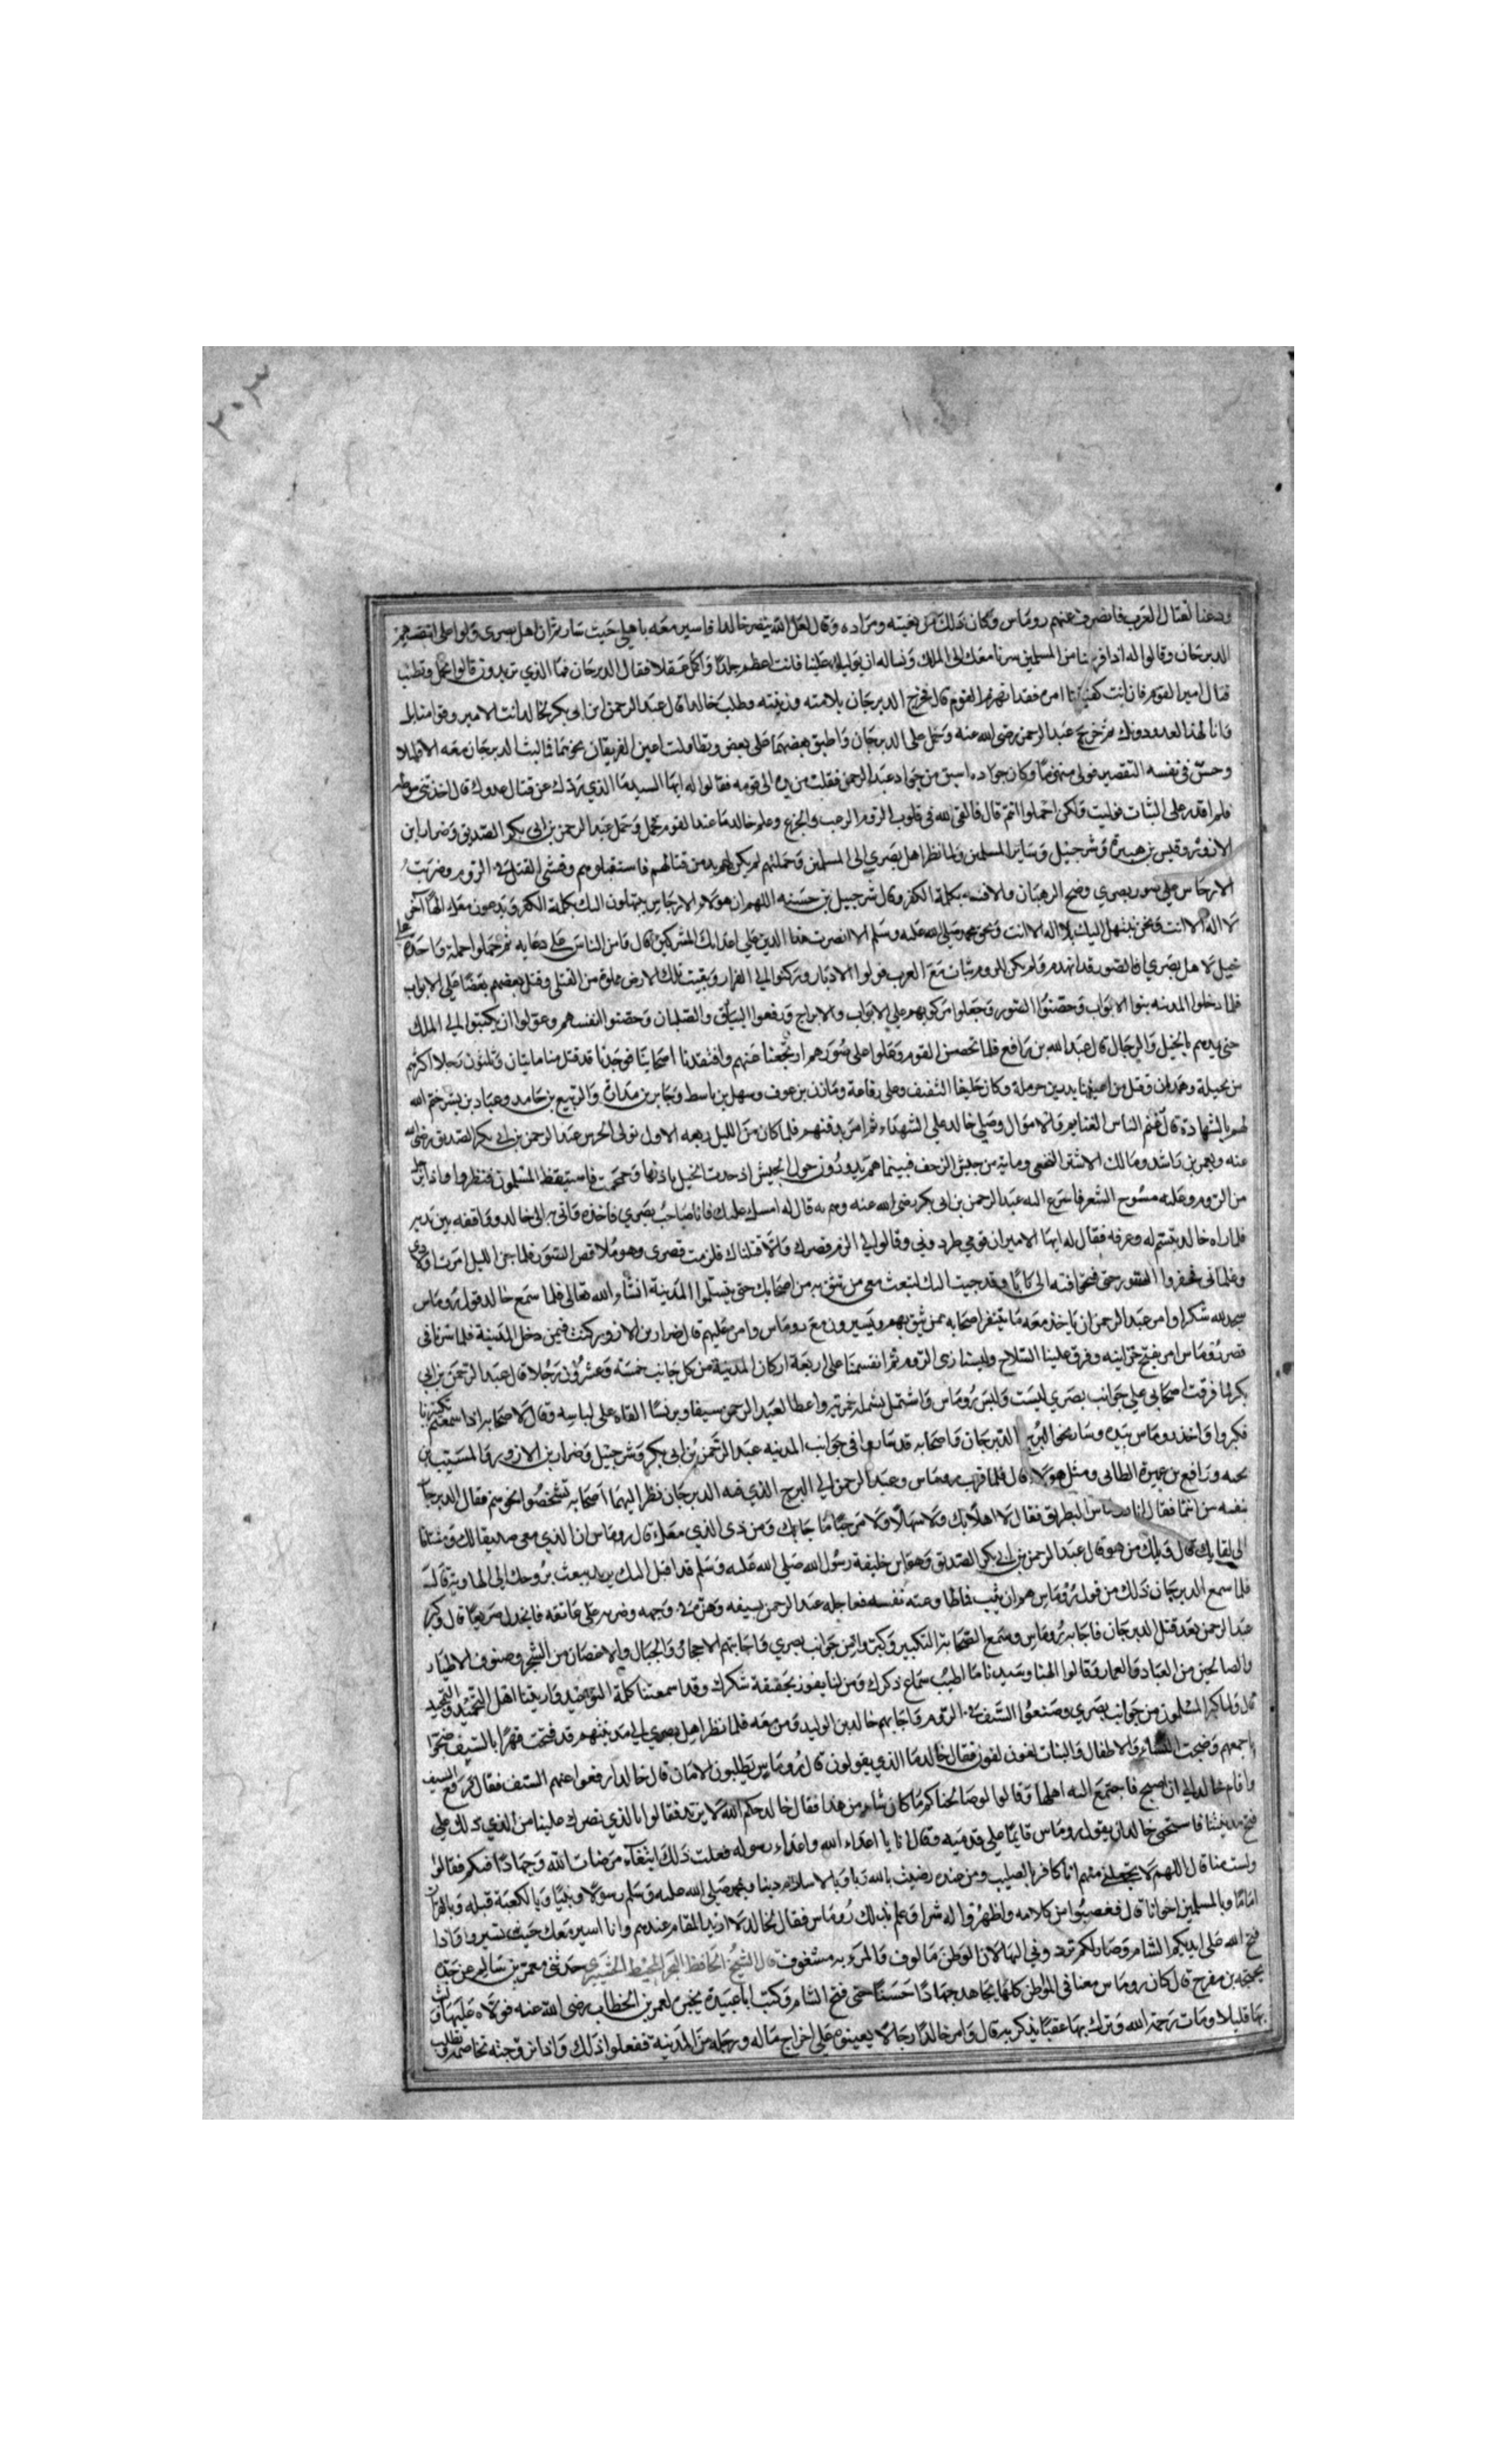 ودعنا لقتال العرب فانصرف عنهم روماس وكان ذلك من بغيته ومراده وقال لعل الله ينصر خالدا فاسير معه باهلي حيث سار ثم ان اهل بصرى ولوا على انفسهم
الديرجان وقالوا له اذا فرغنا من المسلمين سرنا معك الى الملك ونساله ان يوليك علينا فانت اعظم جلدا واكمل عقلا فقال الديرجان فما الذي تريدون قالوا تحمل وتطلب
قتال امير القوم فان انت كفيتنا امره فقد انهزم القوم قال فخرج الديرجان بلامته وزينته وطلب خالدا قال عبد الرحمن ابن ابي بكر لخالد انت الامير وقوامنا بك
وانا لهذا العدو دونك ثم خرج عبد الرحمن رضي الله عنه وحمل على الديرجان واطبق بعضهما على بعض وتطاولت اعين الفريقان نحوهما فما لبث الديرجان معه الا قليلا
وحس في نفسه التقصير فولى منهزما وكان جواده اسبق من جواد عبد الرحمن ففلت من يده الى قومه فقالوا له ايها السيد ما الذي ردك عن قتال عدوك قال اخذتني
فلم اقدر على الثبات فوليت ولكن احملوا انتم قال فالقى الله في قلوب الروم الرعب والجزع وعلم خالد ما عند القوم فحمل وحمل عبد الرحمن بن ابي بكر الصديق وضرار ابن
الازور وقيس بن هبيرة وشرحبيل وسائر المسلمين ولما نظر اهل بصرى الى المسلمين وحملتهم لم يكن لهم بد من قتالهم فاستقبلوهم وفشى القتل في الروم وضربت
الارجاس على سور بصرى وضج الرهبان والاقسه بكلمة الكفر وقال شرحبيل بن حسنه اللهم ان هولاء الارجاس يبتهلون اليك بكلمة الكفر ويدعون معك الها آخر
لا اله الا انت ونحن نبتهل اليك بلا اله الا انت وبحق محمد صلى الله عليه وسلم الا نصرت هذا الدين على اعدائك المشركين قال وامن الناس على دعايه ثم حملوا حملة واحدة
خيل لاهل بصرى ان السور قد انهدم ولم يكن للروم ثبات مع العرب فولوا الادبار وركنوا الى الفرار وبقيت تلك الارض مملوة من القتلى وقتل بعضهم بعضا على الابواب
فلما دخلوا المدينه بنوا الابواب وحصنوا السور وجعلوا مركوبهم على الابواب والابراج ورفعوا البيارق والصلبان وحصنوا انفسهم وعولوا ان يكتبوا الى الملك
حتى يمدهم بالخيل والرجال قال عبد الله بن رافع فلما تحصن القوم وعلوا على سورهم ارتجعنا عنهم وافتقدنا اصحابنا فوجدنا قد قتل منا مايتان وثلثون رجلا اكثرهم
من بجيلة وهمدان وقتل من اعيننا بدر بن حرملة وكان حليفا لثقيف وعلي رفاعة ومازن بن عوف وسهل بن باسط وجابر بن مدان والربيع بن حامد وعباد بن بشر ختم الله
لهم بالشهادة قال وغنم الناس الغنايم والاموال وصلى خالد على الشهداء ثم امر بدفنهم فلما كان من الليل ربعه الاول تولى الحرس عبد الرحمن بن ابي بكر الصديق رضي الله
عنه ومعمر بن راشد ومالك الاشتر النخعي وماية من جيش الزحف فبينما هم يدورون حول الجيش اذ حدت الخيل باذنها وحمحمت فاستيقظ المسلمون فنظروا واذا
من الروم وعليه مسوح الشعر فاسرع اليه عبد الرحمن بن ابي بكر رضي الله عنه وهم به قال له امسك عليك فانا صاحب بصرى فاخذه واتى به الى خالد وواقفه بين يديه
فلما راه خالد تبسم له وعرفه فقال له ايها الامير ان قومي طردوني وقالوا لي الزم قصرك والا قتلناك فلزمت قصري وهو ملاصق السور فلما جن الليل امرت اولادي
وغلماني فحفروا السور حتى فتحوا فيه الى كابابا وقد جيت اليك لتبعث معي من تثق به من اصحابك حتى تستلموا المدينة انشاء الله تعالى فلما سمع خالد قول روماس
سجد لله شكرا وامر عبد الرحمن ان ياخذ معه ماية نفر اصحابه ممن يثق بهم ويسيرون مع روماس وامره عليهم قال ضرار بن الازور كنت فيمن دخل المدينة فلما سرنا في
قصر روماس امر بفتح خزاينه وفرق علينا السلاح ولبسنا زي الروم ثم انقسمنا على اربعة اركان المدينة من كل جانب خمسة وعشرون رجلا قال عبد الرحمن بن ابي
بكر لما فرقت اصحابي على جوانب بصرى لبست ولبس روماس واشتمل واعطا لعبد الرحمن سيفا وبرنسا القاه على لباسه وقال لاصحابه اذا سمعتم تكبيرنا
فكبروا واخذ روماس بيده وسار نحو البرج الديرجان واصحابه قد ثاروا في جوانب المدينه عبد الرحمن بن ابي بكر وشرحبيل وضرار بن الازور والمسيب بن
نجبه ورافع بن عميرة الطائي ومثل هولاء قال فلما قرب روماس وعبد الرحمن الى البرج الذي فيه الديرجان نظر اليهما اصحابه تشخصوا نحوهم فقال الديرجان
نفسه من انتما فقال انا روماس البطريق فقال لا اهلا بك ولا سهلا ولا مرحبا ما جابك ومن ذي الذي معك قال روماس ان الذي معي صديقا لك ومشتاقا
الى لقايك قال ويلك من هو قال عبد الرحمن بن ابي بكر الصديق وهو ابن خليفة رسول الله صلى الله عليه وسلم قد اقبل اليك يريد يبعث بروحك الى الهاوية قال
فلما سمع الديرجان ذلك من قول روماس هم ان يثب فاطاوعته نفسه فعاجله عبد الرحمن بسيفه وهزه في وجهه وضربه على عاتقه فانجدل صريعا قال وكبر
عبد الرحمن بعد قتل الديرجان فاجابه روماس وسمع الصحابة التكبير وكبروا من جوانب بصرى واجابتهم الاحجار والجبال والاغصان من الشجر وصنوف الاطيار
والصالحين من العباد والعمار وقالوا الهنا وسيدنا ما اطيب سماع ذكرك ومن لنا يفوز بحقيقة شكرك وقد سمعتنا كلمة التوحيد واريتنا اهل التحميد والتمجيد
قال ولما كبر المسلمون من جوانب بصرى وصنعوا السيف في الروم واجابهم خالد بن الوليد ومن معه فلما نظر اهل بصرى الى مدينتهم قد فتحت قهرا بالسيف ضجوا
باجمعهم وضجت النساء والاطفال والبنات لفون لفون فقال خالد ما الذي يقولون قال روماس يطلبون الامان قال خالد ارفعوا عنهم السيف فقال فرفع السيف
واقام خالد الى ان اصبح فاجتمع اليه اهلها وقالوا لو صالحناكم ما كان شيء من هذا فقال خالد حكم الله لا يرد فقالوا بالذي نصرك علينا من الذي دلك على
فتح مدينتنا فاستحى خالد ان يقول روماس قايما على قدميه وقال انا يا اعداء الله واعداء رسوله فعلت ذلك ابتغاء مرضات الله وجهادا فيكم فقالوا
ولست منا قال اللهم لا تجعلني منهم انا كافر بالصليب ومن عبده رضيت بالله ربا وبالاسلام دينا وبمحمد صلى الله عليه وسلم رسولا ونبيا وبالكعبة قبله وبالقران
اماما وبالمسلمين اخوانا قال فغضبوا من كلامه واظهروا له شرا وعلم بذلك روماس فقال لخالد لا اريد المقام عندهم وانا اسير معك حيث تسير واذا
فتح الله على ايديكم الشام وصار لكم تردوني اليها لان الوطن مالوف والمرء به مشغوف قال الشيخ الحافظ البحر المحيط حدثني معمر بن سالم عن جده
نجيبه بن مفرح قال كان روماس معنا في المواطن كلها يجاهد جهادا حسنا حتى فتح الشام وكتب ابا عبيدة يخبر لعمر بن الخطاب رضي الله عنه فولاه عليها
بها قليلا ومات رحمة الله وترك بها عقبا يذكر به قال وامر خالدا رجالا يعينوه على اخراج ماله ورحله من المدينة ففعلوا ذلك واذا بزوجته تخاصمه وتطلب